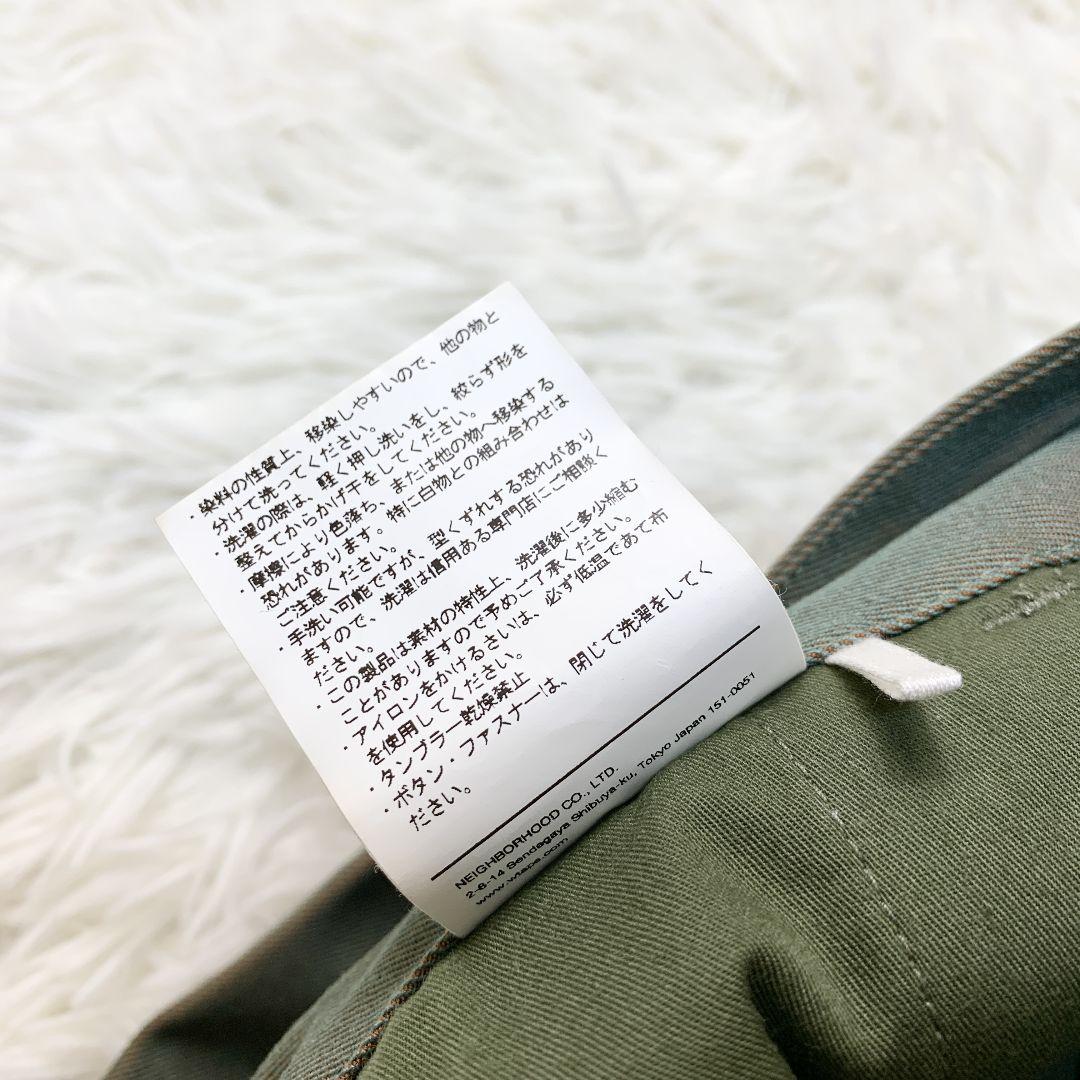 ・染料の性質上、移染しやすいので、他の物と
分けて洗ってください。
・洗濯の際は、軽く押し洗いをし、絞らず形を
整えてからかげ干をしてください。
・摩擦により色落ち、または他の物へ移染する
恐れがあります。特に白物との組み合わせは
ご注意ください。
・手洗い可能ですが、型くずれする恐れがあり
ますので、洗濯は信用ある専門店にご相談く
ださい。
・この製品は素材の特性上、洗濯後に多少縮む
ことがありますので予めご了承ください。
・アイロンをかけるさいは、必ず低温であて布
を使用してください。
・タンブラー乾燥禁止
・ボタン・ファスナーは、閉じて洗濯をしてく
ださい。
NEIGHBORHOOD CO., LTD.
2-6-14 Sendagaya Shibuya-ku, Tokyo Japan 151-0051
www.wtaps.com